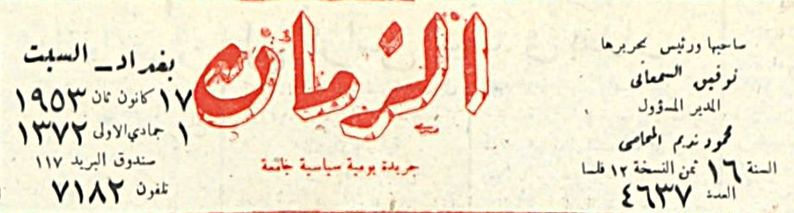 صاحبها ورئيس تحريرها
توفيق السمعاني
المدير المسؤول
محمود نديم المحامي
السنة ١٦ ثمن النسخة ١٢ فلسا
العدد ٤٦٣٧
الزمان
جريدة يومية سياسية جامعة
بغداد - السبت
١٧ كانون ثان ١٩٥٣
١ جمادي الاولى ١٣٧٢
صندوق البريد ١١٧
تلفون ٧١٨٢